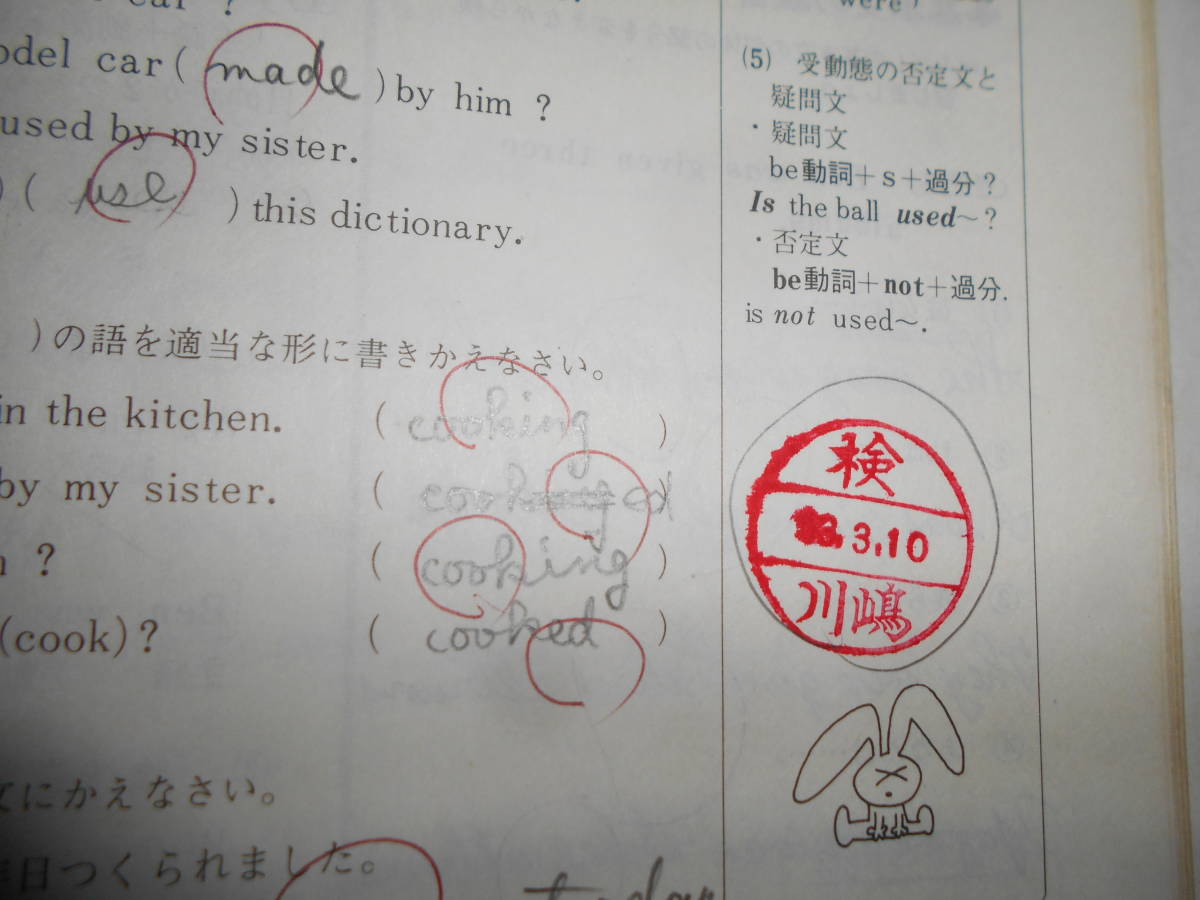 car ?
odel car( made )by him ?
used by my sister.
)( use )this dictionary.
)の語を適当な形に書きかえなさい。
in the kitchen. ( cooking )
by my sister. ( cooked )
? ( cooking )
(cook)? ( cooked )
にかえなさい。
日つくられました。
today
were)
(5) 受動態の否定文と
疑問文
・疑問文
be動詞+s+過分?
Is the ball used~?
・否定文
be動詞+not+過分.
is not used~.
検
3.10
川嶋